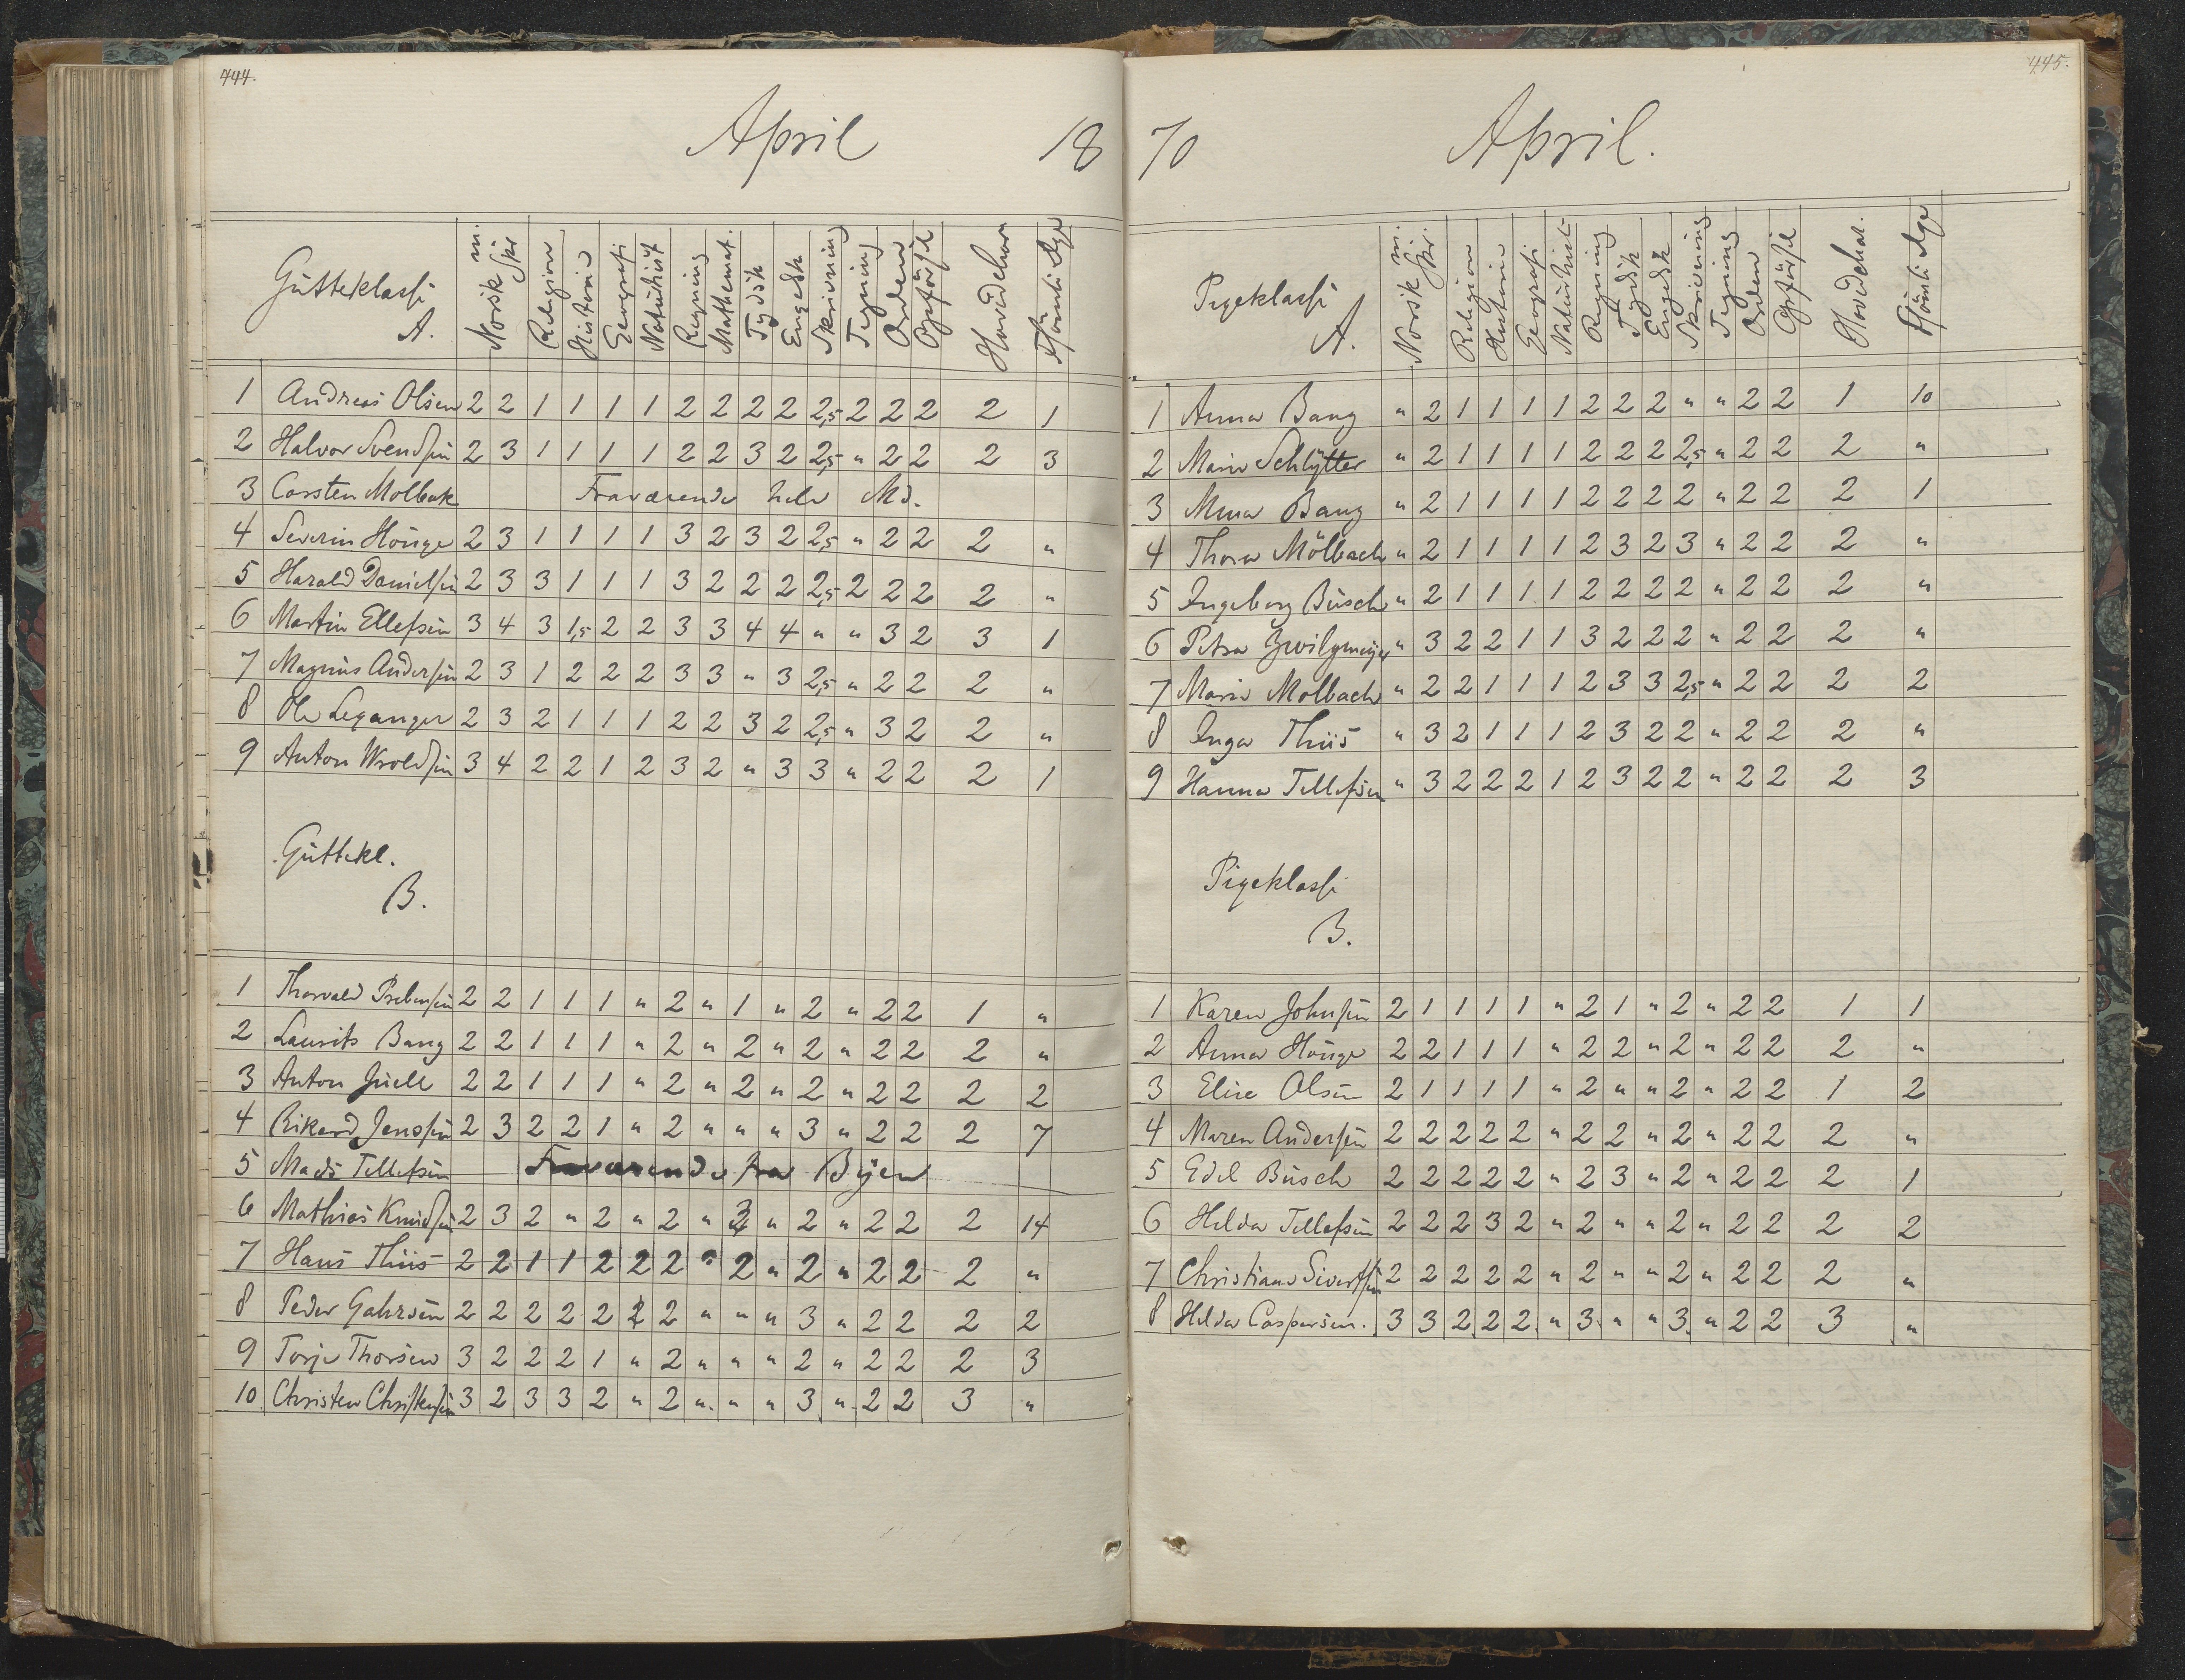 444.
April 18
Gutteklasse A. Norsk m. Skr Religion Historie Geografi Naturhist Regning Mathemat. Tydsk Engelsk Skrivning Tegning Orden Opførsel Hovedchar Forsøm.
1 Andreas Olsen 2 2 1 1 1 1 2 2 2 2 2,5 2 2 2 2 1
2 Halvor Svendsen 2 3 1 1 1 1 2 2 3 2 2,5 " 2 2 2 3
3 Carsten Molbak Fraværende hele Md.
4 Severin Houge 2 3 1 1 1 1 3 2 3 2 2,5 " 2 2 2 "
5 Harald Danielsen 2 3 3 1 1 1 3 2 2 2 2,5 2 2 2 2 "
6 Martin Ellefsen 3 4 3 1,5 2 2 3 3 4 4 " " 3 2 3 1
7 Magnus Andersen 2 3 1 2 2 2 3 3 " 3 2,5 " 2 2 2 "
8 Ole Leganger 2 3 2 1 1 1 2 2 3 2 2,5 " 3 2 2 "
9 Anton Wroldsen 3 4 2 2 1 2 3 2 " 3 3 " 2 2 2 1
Guttekl.
B.
1 Thorvald Prebensen 2 2 1 1 1 " 2 " 1 " 2 " 2 2 1 "
2 Laurits Bang 2 2 1 1 1 " 2 " 2 " 2 " 2 2 2 "
3 Anton Juell 2 2 1 1 1 " 2 " 2 " 2 " 2 2 2 2
4 Rikard Jenssen 2 3 2 2 1 " 2 " " " 3 " 2 2 2 7
5 Mads Tellefsen Fraværende fra Byen
6 Mathias Knudsen 2 3 2 " 2 " 2 " 3 " 2 " 2 2 2 14
7 Hans Thiis 2 2 1 1 2 2 2 " 2 " 2 " 2 2 2 "
8 Peder Gahrsen 2 2 2 2 2 2 2 " " " 3 " 2 2 2 2
9 Torje Thorsen 3 2 2 2 1 " 2 " " " 2 " 2 2 2 3
10. Christen Christensen 3 2 3 3 2 " 2 " " " 3 " 2 2 3 "
445.
70 April.
Pigeklasse A. Norsk m. Skr. Religion Historie Geografi Naturhist Regning Tydsk Engelsk Skrivning Tegning Orden Opførsel Hovedchar. Forsøm.
1 Anna Bang " 2 1 1 1 1 2 2 2 " " 2 2 1 10
2 Marie Schlytter " 2 1 1 1 1 2 2 2 2,5 " 2 2 2 "
3 Mina Bang " 2 1 1 1 1 2 2 2 2 " 2 2 2 1
4 Thora Mölbach " 2 1 1 1 1 2 3 2 3 " 2 2 2 "
5 Ingeborg Busch " 2 1 1 1 1 2 2 2 2 " 2 2 2 "
6 Petra Zwilgmeyer " 3 2 2 1 1 3 2 2 2 " 2 2 2 "
7 Marie Molbach " 2 2 1 1 1 2 3 3 2,5 " 2 2 2 2
8 Inga Thiis " 3 2 1 1 1 2 3 2 2 " 2 2 2 "
9 Hanna Tellefsen " 3 2 2 2 1 2 3 2 2 " 2 2 2 3
Pigeklasse
B.
1 Karen Johnsen 2 1 1 1 1 " 2 1 " 2 " 2 2 1 1
2 Anna Houge 2 2 1 1 1 " 2 2 " 2 " 2 2 2 "
3 Elise Olsen 2 1 1 1 1 " 2 " " 2 " 2 2 1 2
4 Maren Andersen 2 2 2 2 2 " 2 2 " 2 " 2 2 2 "
5 Edel Busch 2 2 2 2 2 " 2 3 " 2 " 2 2 2 1
6 Hilda Tellefsen 2 2 2 3 2 " 2 " " 2 " 2 2 2 2
7 Christiane Sivertsen 2 2 2 2 2 " 2 " " 2 " 2 2 2 "
8 Hilda Caspersen. 3 3 2 2 2 " 3 " " 3 " 2 2 3 "